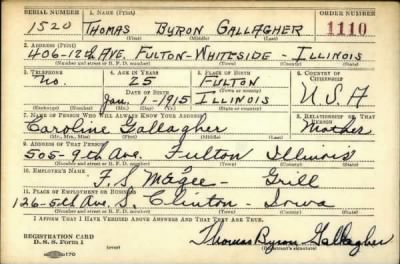 SERIAL NUMBER 1. NAME (Print) ORDER NUMBER
1520 THOMAS BYRON GALLAGHER 1110
(First) (Middle) (Last)
2. ADDRESS (Print)
406-12th AVE. FULTON-WHITESIDE - ILLINOIS
(Number and street or R. F. D. number) (Town) (County) (State)
3. TELEPHONE 4. AGE IN YEARS 5. PLACE OF BIRTH 6. COUNTRY OF CITIZENSHIP
no. 25 FULTON
DATE OF BIRTH (Town or county)
Jan. 1915 ILLINOIS U.S.A
(Exchange) (Number) (Mo.) (Day) (Yr.) (State or country)
7. NAME OF PERSON WHO WILL ALWAYS KNOW YOUR ADDRESS 8. RELATIONSHIP OF THAT PERSON
Caroline Gallagher Mother
(Mr., Mrs., Miss) (First) (Middle) (Last)
9. ADDRESS OF THAT PERSON
505-9th Ave Fulton Illinois
(Number and street or R. F. D. number) (Town) (County) (State)
10. EMPLOYER'S NAME
F. S. Magee - Grill
11. PLACE OF EMPLOYMENT OR BUSINESS
126-5th Ave. S. Clinton - Iowa
(Number and street or R. F. D. number) (Town) (County) (State)
I AFFIRM THAT I HAVE VERIFIED ABOVE ANSWERS AND THAT THEY ARE TRUE.
REGISTRATION CARD
D. S. S. Form 1
Thomas Byron Gallagher
(Registrant's signature)